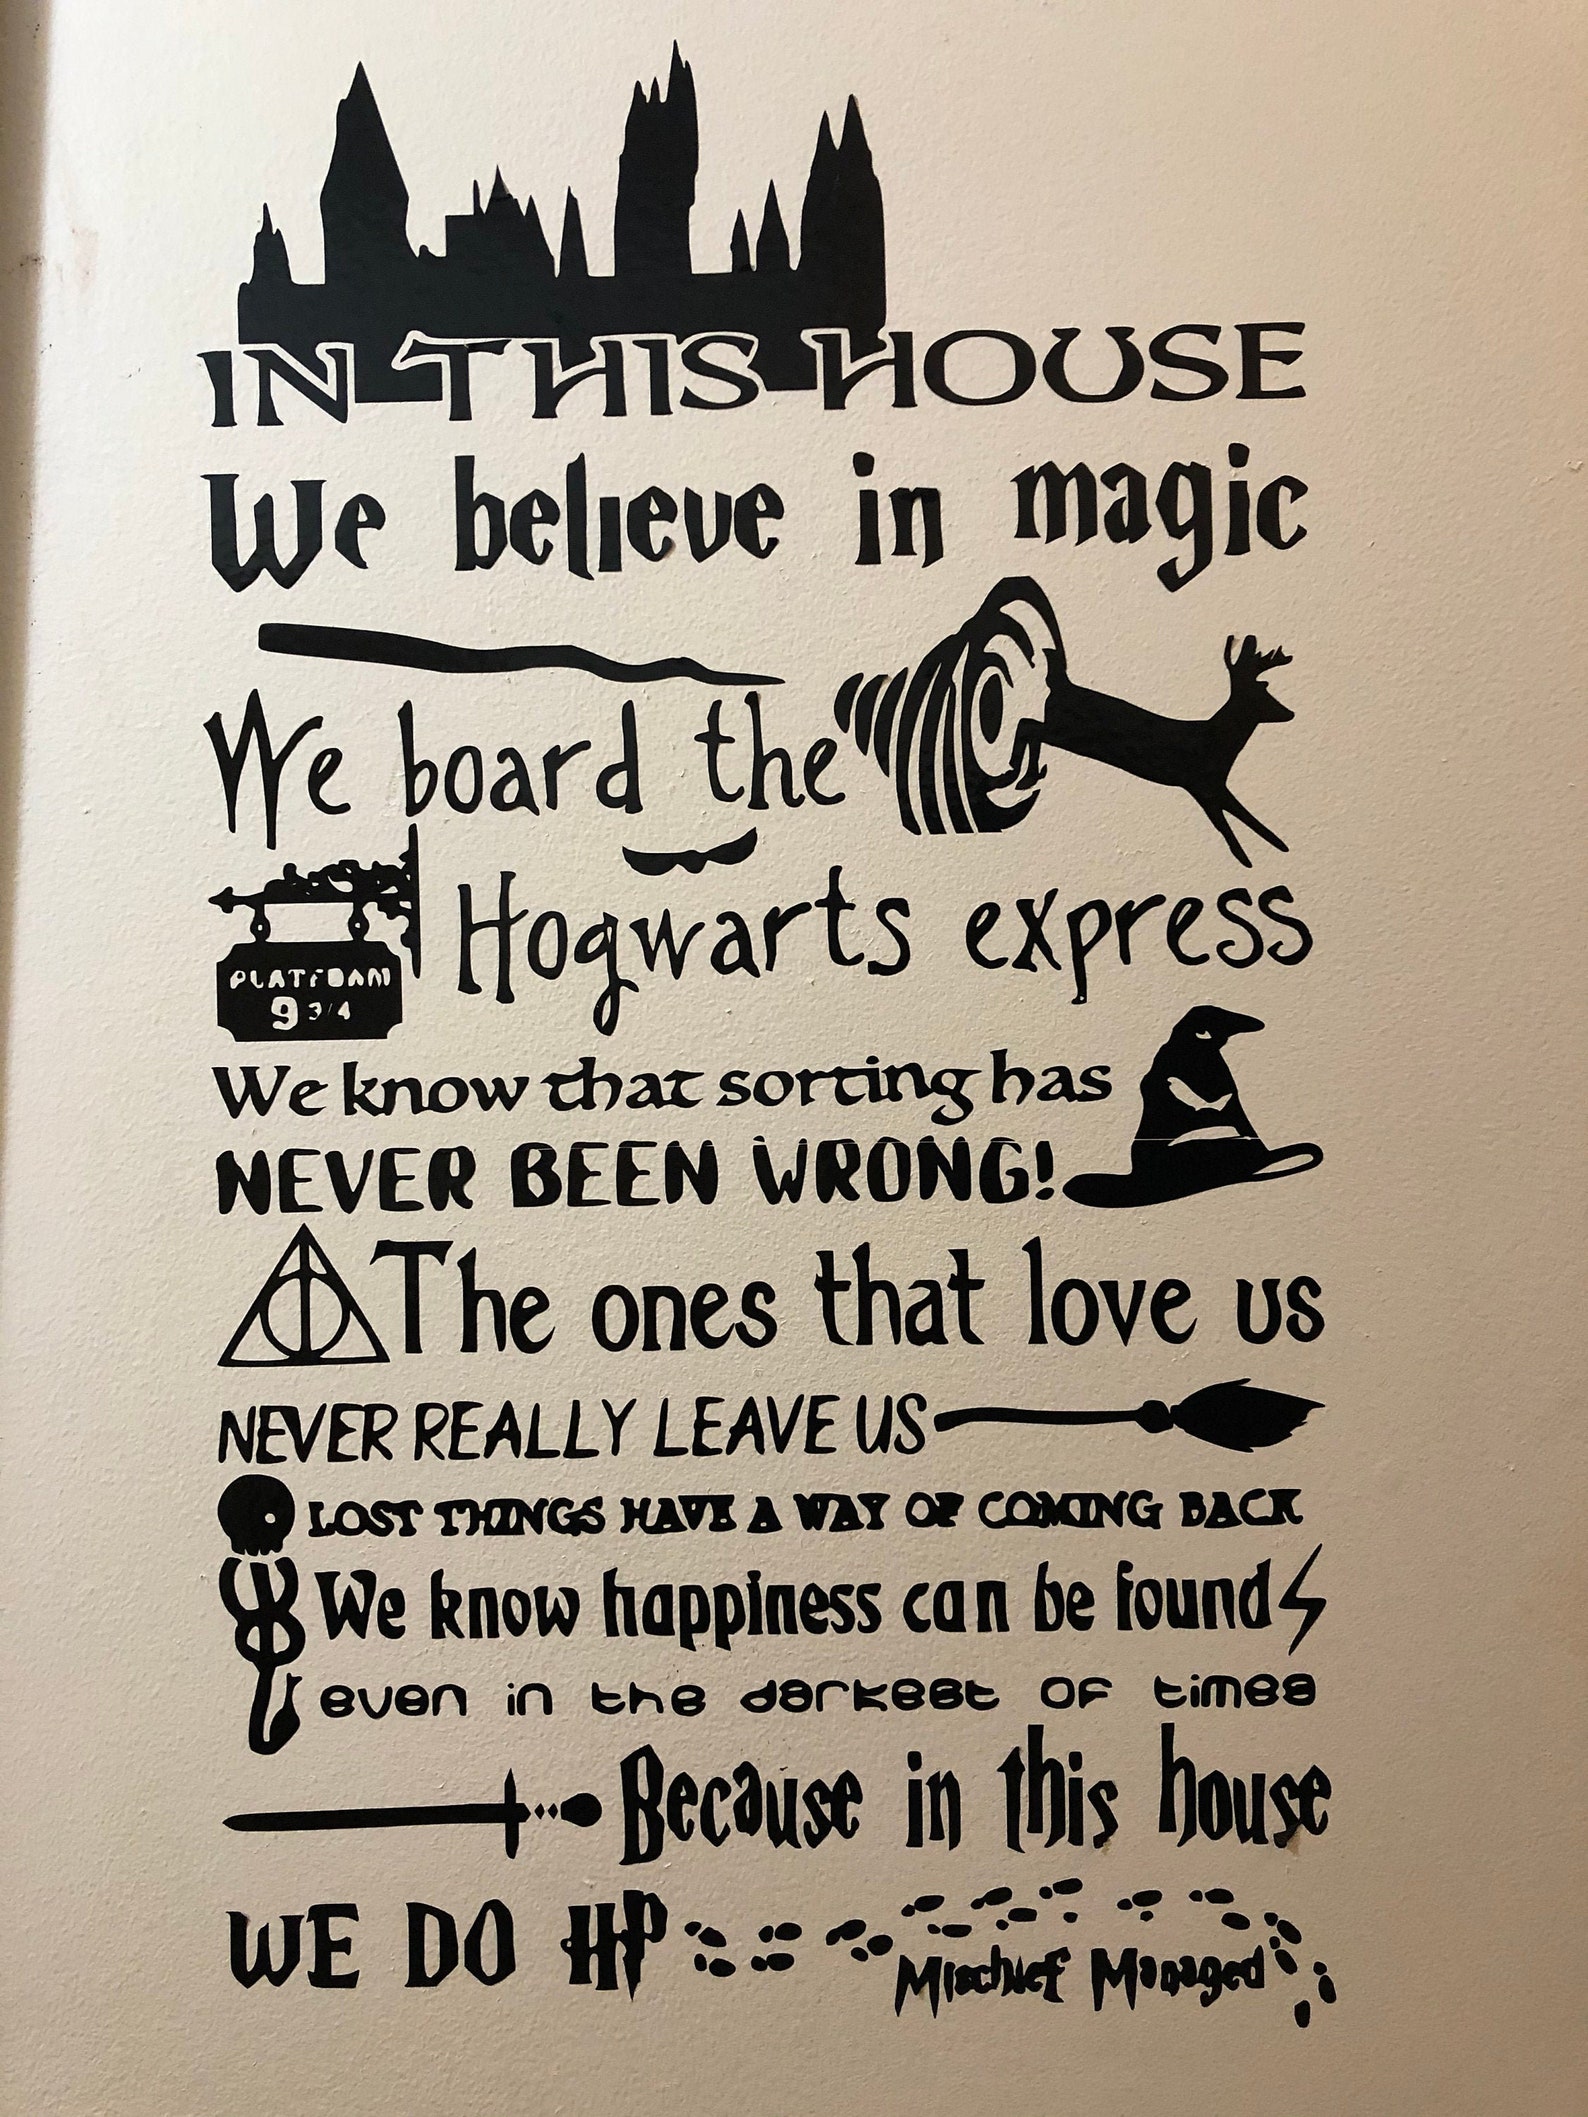 IN THIS HOUSE
We believe in magic
We board the
PLATFOAM
9 3/4
Hogwarts express
We know that sorting has
NEVER BEEN WRONG!
The ones that love us
NEVER REALLY LEAVE US
LOST THINGS HAVE A WAY OF COMING BACK
We know happiness can be found
even in the darkest of times
Because in this house
WE DO HP
Mischief Managed